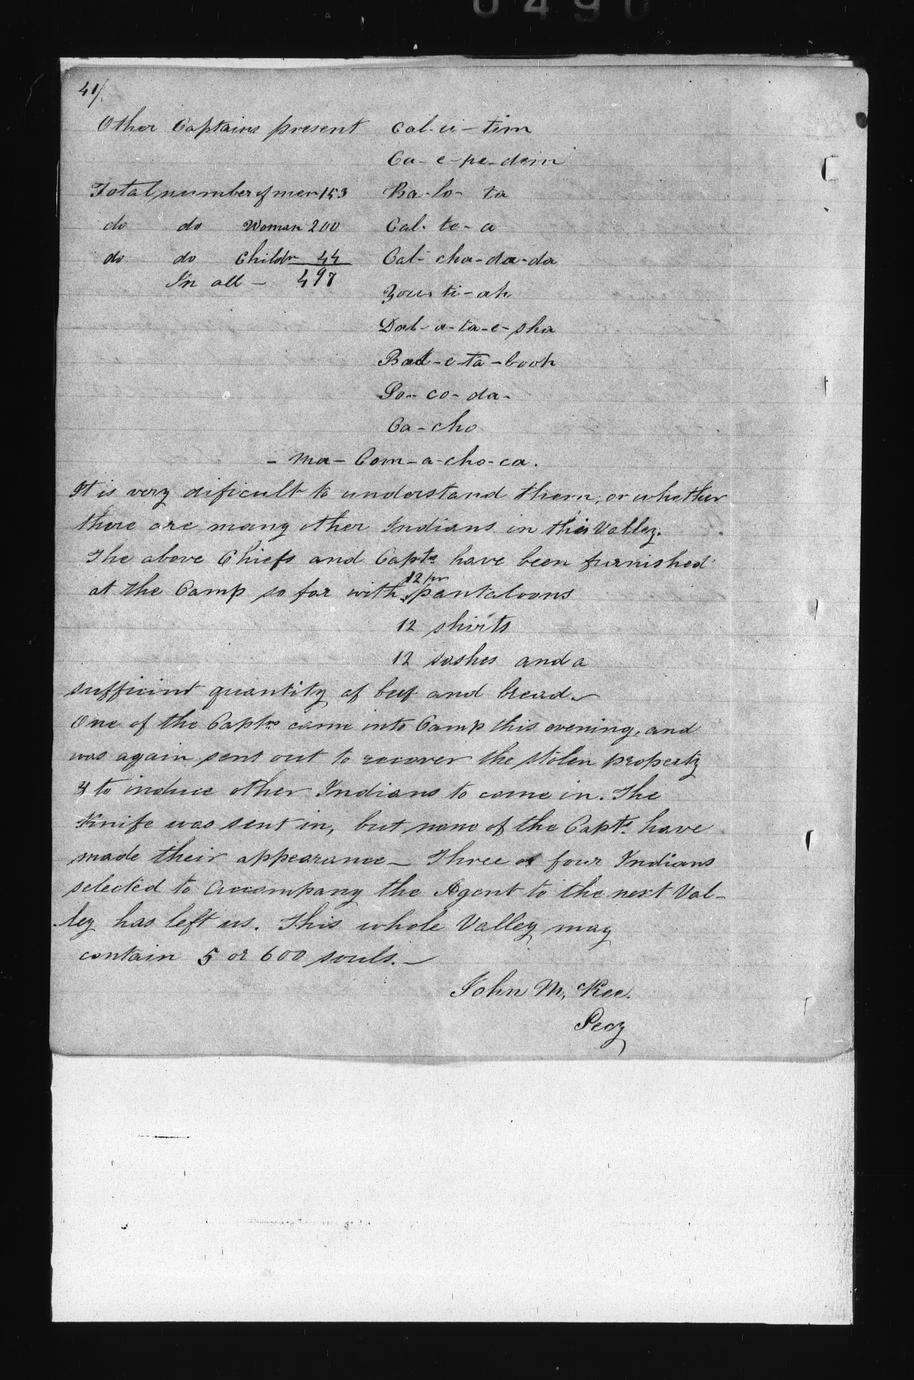 41/.
Other Captains present Cal-ii-tim
Ca-e-pe-dem
Total number of men 153 Ba-lo-ta
do do Woman 200 Cal-te-a
do do Childn 44 Cal-cha-da-da
In all — 497 ti-ah
Dal-a-ta-e-sha
Bat-e-ta-book
Po-co-da-
Ca-cho
- Ma-Com-a-cho-ca.
It is very dificult to understand them, or whether
there are many other Indians in this Valley.
The above Chiefs and Capts have been furnished
at the Camp so far with 12 pr pantaloons
12 shirts
12 sashes and a
sufficint quantity of beef and bread.
One of the Capts came into Camp this evening, and
was again sent out to recover the stolen property
& to induce other Indians to come in. The
Knife was sent in, but none of the Capts. have
made their appearance — Three or four Indians
selected to accompany the Agent to the next Val-
ley has left us. This whole Valley may
contain 5 or 600 souls. —
John M, Kee.
Secy